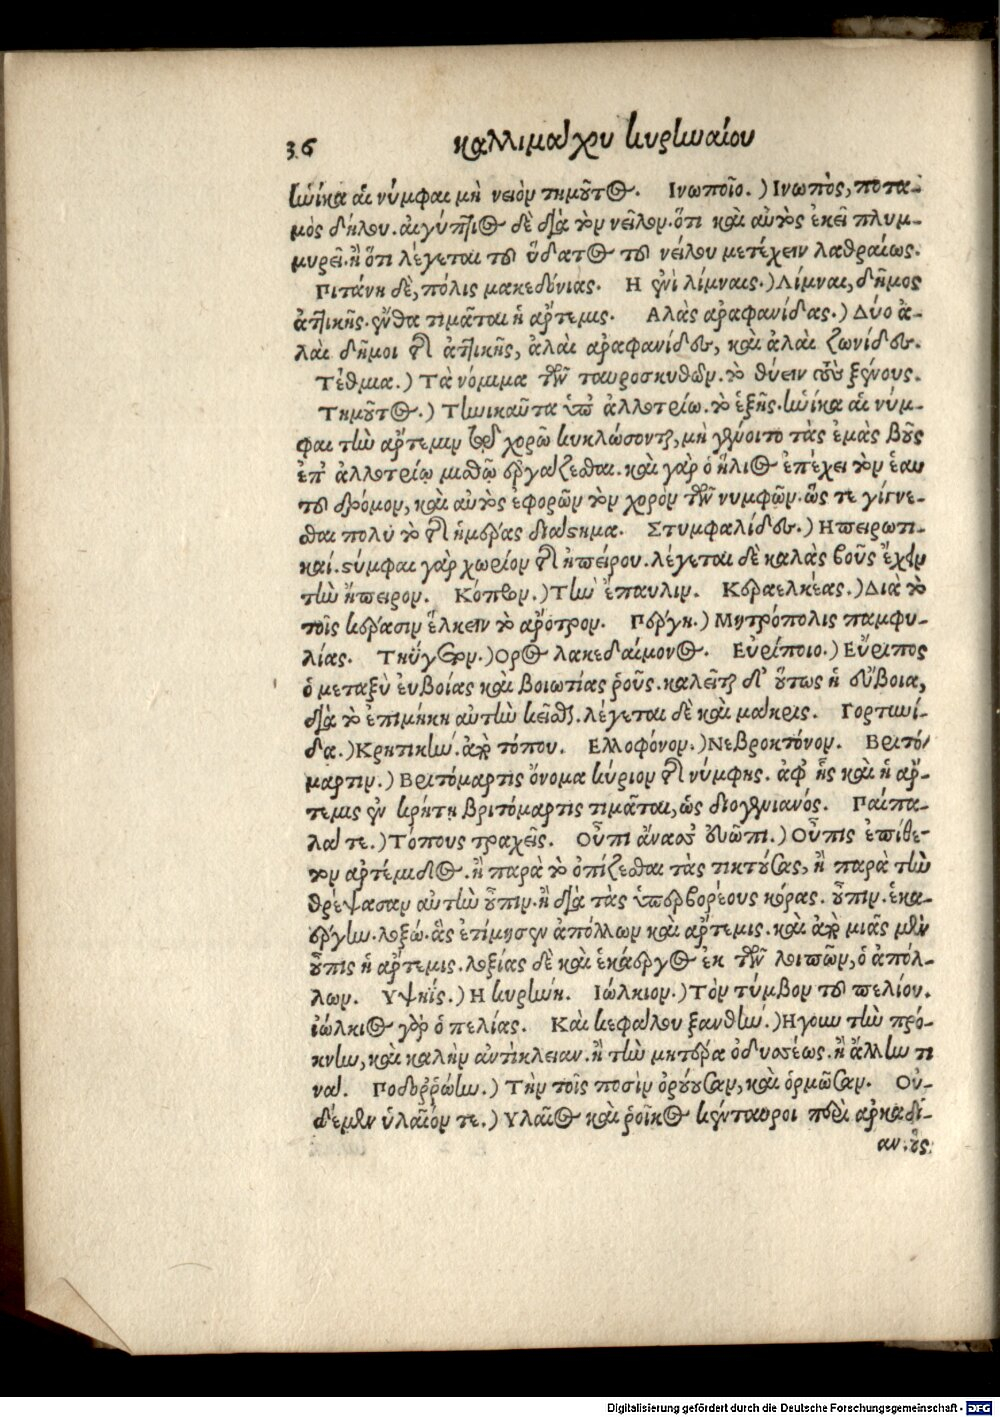 36 καλλιμάχου κυρηναίου
ἡνίκα αἱ νύμφαι μὴ νειὸν τημοῦτος. Ινωποῖο.) Ινωπὸς, ποτα-
μὸς δήλου. αἰγύπτιος δὲ διὰ τὸν νεῖλον. ὅτι καὶ αὐτὸς ἐκεῖ πλημ-
μυρεῖ. ἢ ὅτι λέγεται τοῦ ὕδατος τοῦ νείλου μετέχειν λαθραίως.
Πιτάνη δὲ, πόλις μακεδόνιας. Η ἐνὶ λίμναις.) Λίμναι, δῆμος
ἀττικῆς. ἔνθα τιμᾶται ἡ ἄρτεμις. Αλὰς ἀραφανίδας.) Δύο ἀ-
λαὶ δῆμοι τῆς ἀττικῆς, ἀλαὶ ἀραφανίδες, καὶ ἀλαὶ ζωνίδες.
Τέθμια.) Τὰ νόμιμα τῶν ταυροσκυθῶν. τὸ θύειν τοὺς ξένους.
Τημοῦτος.) Τηνικαῦτα ὑπ' ἀλλοτρίῳ. τὸ ἑξῆς. ἡνίκα αἱ νύμ-
φαι τὴν ἄρτεμιν ἐν χορῷ κυκλώσονται, μὴ γένοιτο τὰς ἐμὰς βοῦς
ἐπ' ἀλλοτρίῳ μισθῷ ἐργάζεσθαι. καὶ γὰρ ὁ ἥλιος ἐπέχει τὸν ἑαυ
τοῦ δρόμον, καὶ αὐτὸς ἐφορῶν τὸν χορὸν τῶν νυμφῶν. ὥς τε γίγνε-
σθαι πολὺ τὸ τῆς ἡμέρας διάστημα. Στυμφαλίδες.) Ηπειρωτι-
καί. στύμφαι γὰρ χωρίον τῆς ἠπείρου. λέγεται δὲ καλὰς βοῦς ἔχειν
τὴν ἤπειρον. Κόπρον.) Τὴν ἔπαυλιν. Κεραελκέας.) Διὰ τὸ
τοῖς κέρασιν ἕλκειν τὸ ἄροτρον. Πέργη.) Μητρόπολις παμφυ-
λίας. Τηΰγετον.) Ορος λακεδαίμονος. Εὐρίποιο.) Εὔριπος
ὁ μεταξὺ ἐυβοίας καὶ βοιωτίας ῥοῦς. καλεῖται δ' οὕτως ἡ εὔβοια,
διὰ τὸ ἐπιμήκη αὐτὴν κεῖσθαι. λέγεται δὲ καὶ μάκρις. Γορτυνί-
δα.) Κρητικήν. ἀπὸ τόπου. Ελλοφόνον.) Νεβροκτόνον. Βριτό-
μαρτιν.) Βριτόμαρτις ὄνομα κύριον τῆς νύμφης. ἀφ' ἧς καὶ ἡ ἄρ-
τεμις ἐν κρήτῃ βριτόμαρτις τιμᾶται, ὡς διογενιανός. Παίπα-
λά τε.) Τόπους τραχεῖς. Οὖπι ἄνασσ' εὐῶπι.) Οὖπις ἐπίθε-
τον ἀρτέμιδος. ἢ παρὰ τὸ ὀπίζεσθαι τὰς τικτούσας, ἢ παρὰ τὴν
θρέψασαν αὐτὴν οὖπιν. ἢ διὰ τὰς ὑπερβορέους κόρας. οὖπιν. ἑκα-
έργην. λοξώ. ἃς ἐτίμησεν ἀπόλλων καὶ ἄρτεμις. καὶ ἀπὸ μιᾶς μὲν
οὖπις ἡ ἄρτεμις. λοξίας δὲ καὶ ἑκάεργος ἐκ τῶν λοιπῶν, ὁ ἀπόλ-
λων. Υψηΐς.) Η κυρήνη. Ιώλκιον.) Τὸν τύμβον τοῦ πελίου.
ἰώλκιος γὰρ ὁ πελίας. Καὶ κεφάλου ξανθήν.) Ηγουν τὴν πρό-
κνην, καὶ καλὴν ἀντίκλειαν. ἢ τὴν μητέρα ὀδυσσέως. ἢ ἄλλην τι
νά. Ποδορρώην.) Τὴν τοῖς ποσὶν ὀρούουσαν, καὶ ὁρμῶσαν. Οὐ-
δέ μὲν ὑλαῖόν τε.) Υλαῖος καὶ ῥοῖκος κένταυροι περὶ ἀρκαδί-
αν. οὓς
Digitalisierung gefördert durch die Deutsche Forschungsgemeinschaft - DFG